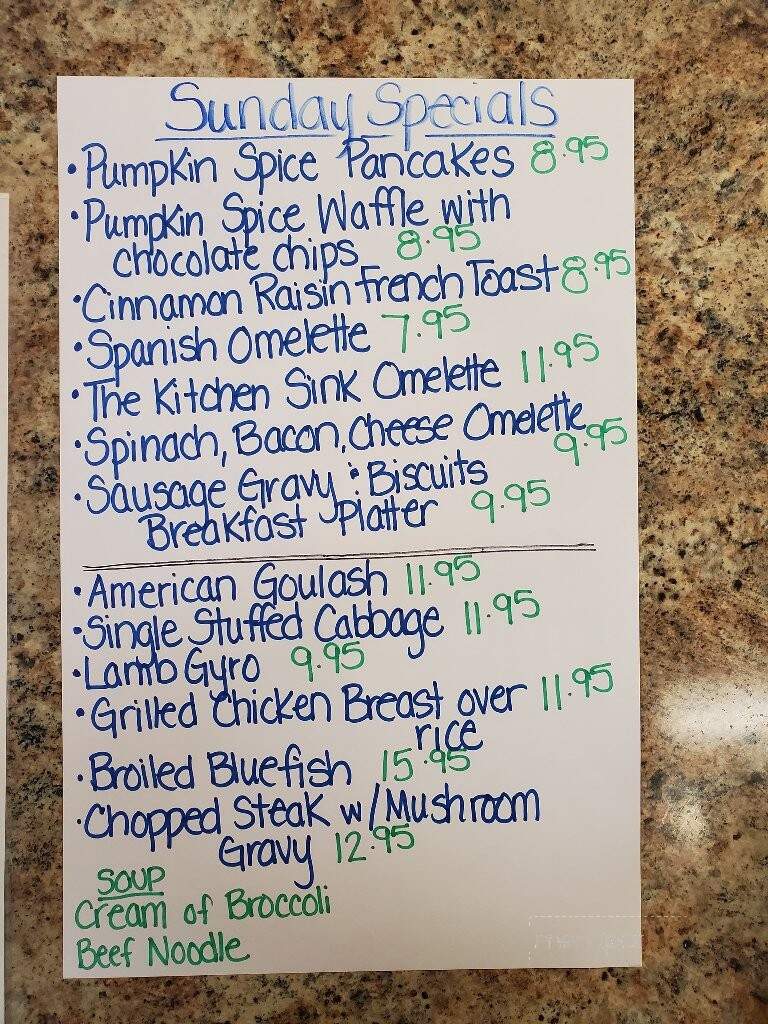 Sunday Specials
• Pumpkin Spice Pancakes 8.95
• Pumpkin Spice Waffle with
chocolate chips 8.95
• Cinnamon Raisin French Toast 8.95
• Spanish Omelette 7.95
• The Kitchen Sink Omelette 11.95
• Spinach, Bacon, Cheese Omelette
9.95
• Sausage Gravy : Biscuits
Breakfast Platter 9.95
• American Goulash 11.95
• Single Stuffed Cabbage 11.95
• Lamb Gyro 9.95
• Grilled Chicken Breast over 11.95
rice
• Broiled Bluefish 15.95
• Chopped Steak w/Mushroom
Gravy 12.95
Soup
Cream of Broccoli
Beef Noodle